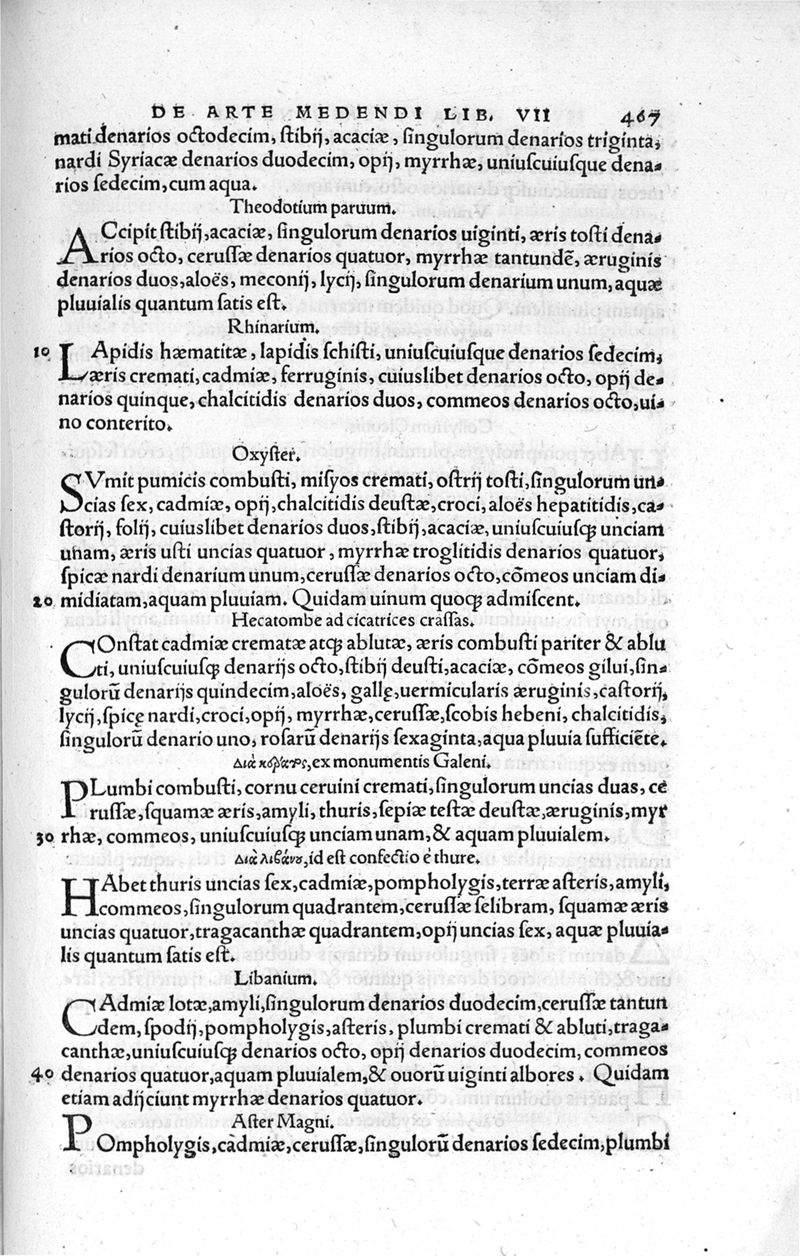 DE ARTE MEDENDI LIB. VII 467
mati denarios octodecim, ſtibij, acaciæ, ſingulorum denarios triginta,
nardi Syriacæ denarios duodecim, opij, myrrhæ, uniuſcuiuſque dena-
rios ſedecim, cum aqua.
Theodotium paruum.
ACcipit ſtibij, acaciæ, ſingulorum denarios uiginti, æris toſti dena-
rios octo, ceruſſæ denarios quatuor, myrrhæ tantundē, æruginis
denarios duos, aloës, meconij, lycij, ſingulorum denarium unum, aquæ
pluuialis quantum ſatis eſt.
Rhinarium.
10 LApidis hæmatitæ, lapidis ſchiſti, uniuſcuiuſque denarios ſedecim,
æris cremati, cadmiæ, ferruginis, cuiuslibet denarios octo, opij de-
narios quinque, chalcitidis denarios duos, commeos denarios octo, ui-
no conterito.
Oxyſter.
SVmit pumicis combuſti, miſyos cremati, oſtrij toſti, ſingulorum un-
cias ſex, cadmiæ, opij, chalcitidis deuſtæ, croci, aloës hepatitidis, ca-
ſtorij, folij, cuiuslibet denarios duos, ſtibij, acaciæ, uniuſcuiuſqꝫ unciam
unam, æris uſti uncias quatuor, myrrhæ troglitidis denarios quatuor,
ſpicæ nardi denarium unum, ceruſſæ denarios octo, cōmeos unciam di-
20 midiatam, aquam pluuiam. Quidam uinum quoqꝫ admiſcent.
Hecatombe ad cicatrices craſſas.
COnſtat cadmiæ crematæ atqꝫ ablutæ, æris combuſti pariter & ablu
ti, uniuſcuiuſqꝫ denarijs octo, ſtibij deuſti, acaciæ, cōmeos gilui, ſin-
gulorū denarijs quindecim, aloës, gallę, uermicularis æruginis, caſtorij,
lycij, ſpicę nardi, croci, opij, myrrhæ, ceruſſæ, ſcobis hebeni, chalcitidis,
ſingulorū denario uno, roſarū denarijs ſexaginta, aqua pluuia ſufficiēte.
Διὰ κέρατος, ex monumentis Galeni.
PLumbi combuſti, cornu ceruini cremati, ſingulorum uncias duas, ce
ruſſæ, ſquamæ æris, amyli, thuris, ſepiæ teſtæ deuſtæ, æruginis, myr
30 rhæ, commeos, uniuſcuiuſqꝫ unciam unam, & aquam pluuialem.
Διὰ λιβάνου, id eſt confectio è thure.
HAbet thuris uncias ſex, cadmiæ, pompholygis, terræ aſteris, amyli,
commeos, ſingulorum quadrantem, ceruſſæ ſelibram, ſquamæ æris
uncias quatuor, tragacanthæ quadrantem, opij uncias ſex, aquæ pluuia-
lis quantum ſatis eſt.
Libanium.
CAdmiæ lotæ, amyli, ſingulorum denarios duodecim, ceruſſæ tantun
dem, ſpodij, pompholygis, aſteris, plumbi cremati & abluti, traga-
canthæ, uniuſcuiuſqꝫ denarios octo, opij denarios duodecim, commeos
40 denarios quatuor, aquam pluuialem, & ouorū uiginti albores. Quidam
etiam adijciunt myrrhæ denarios quatuor.
Aſter Magni.
POmpholygis, cadmiæ, ceruſſæ, ſingulorū denarios ſedecim, plumbi